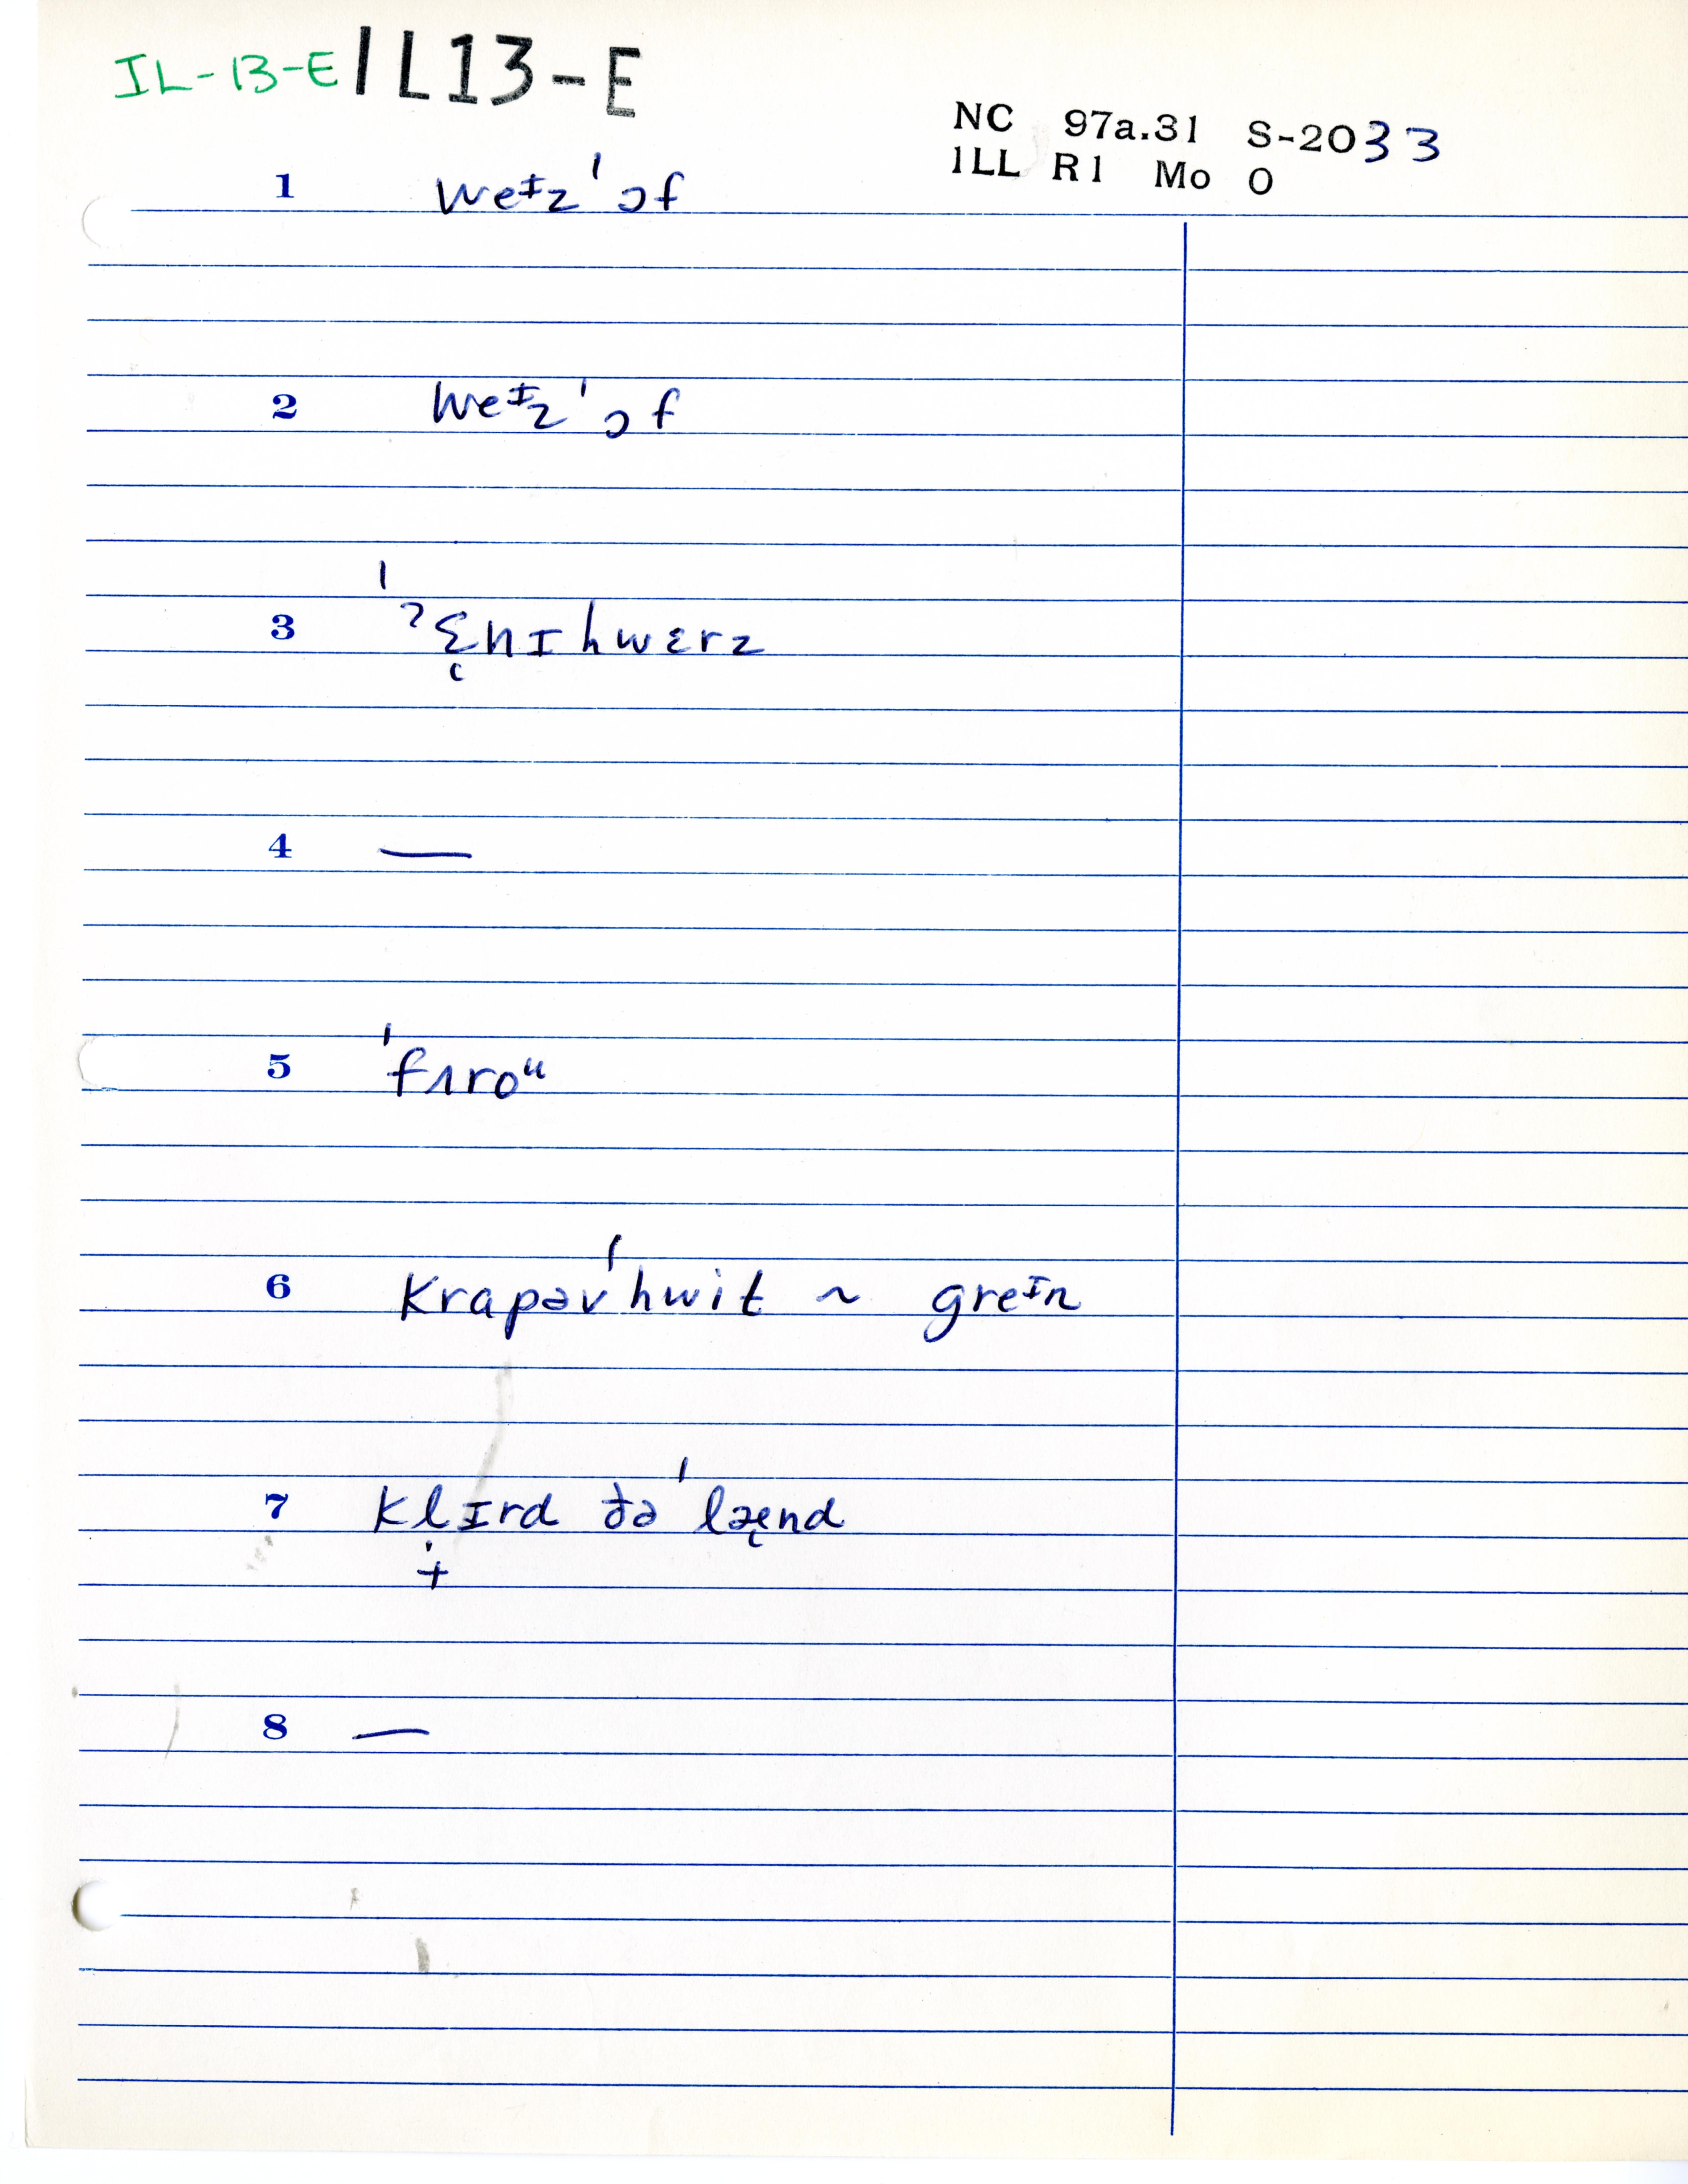 IL-13-E IL13-E
NC 97a.31 S-2033
ILL R1 Mo O
1 weᵻz ˈɔf
2 weᵻz ˈɔf
3 ˈˀɛ̜nɪhwɛrz
4 —
5 ˈfʌroᵘ
6 krapəvˈhwit ~ greᶦn
7 kl̟̣ɪrd ðə ˈlæ̜nd
8 —